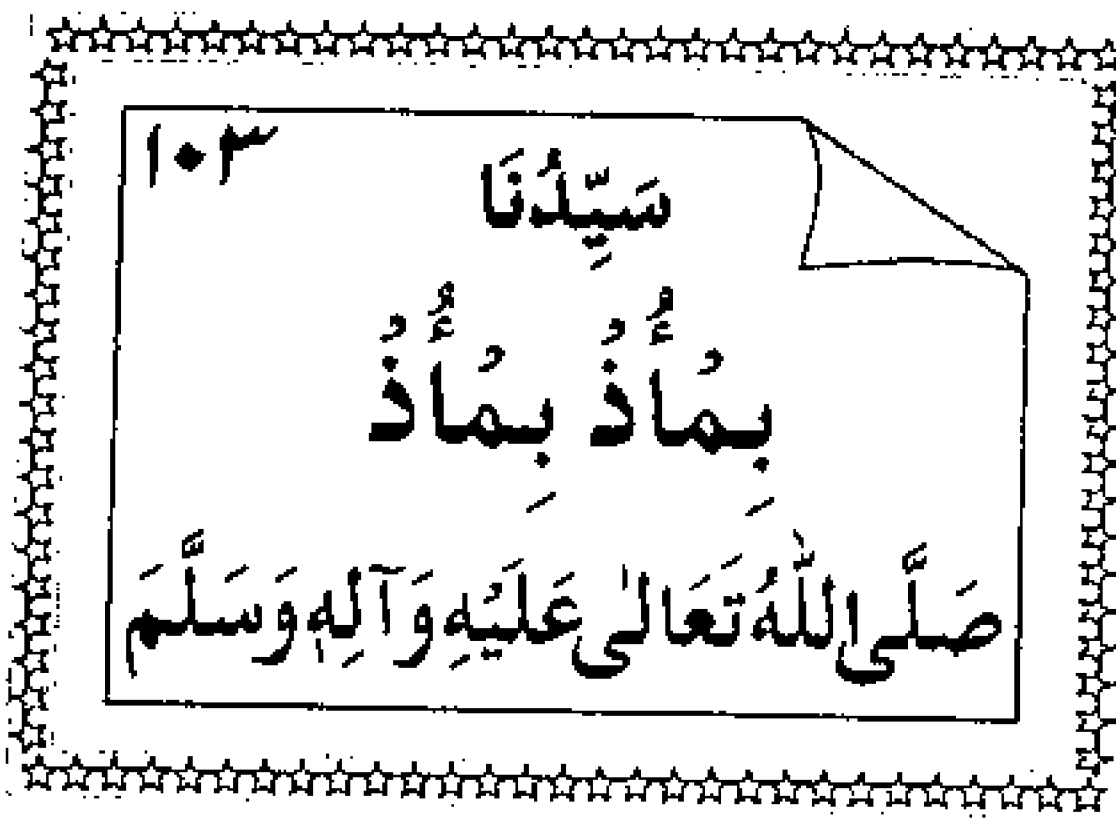 ١٠٣
سَيِّدُنَا
بِمُأُذُ بِمُأُذُ
صَلَّى اللّٰهُ تَعَالٰى عَلَيْهِ وَآلِهٖ وَسَلَّمَ